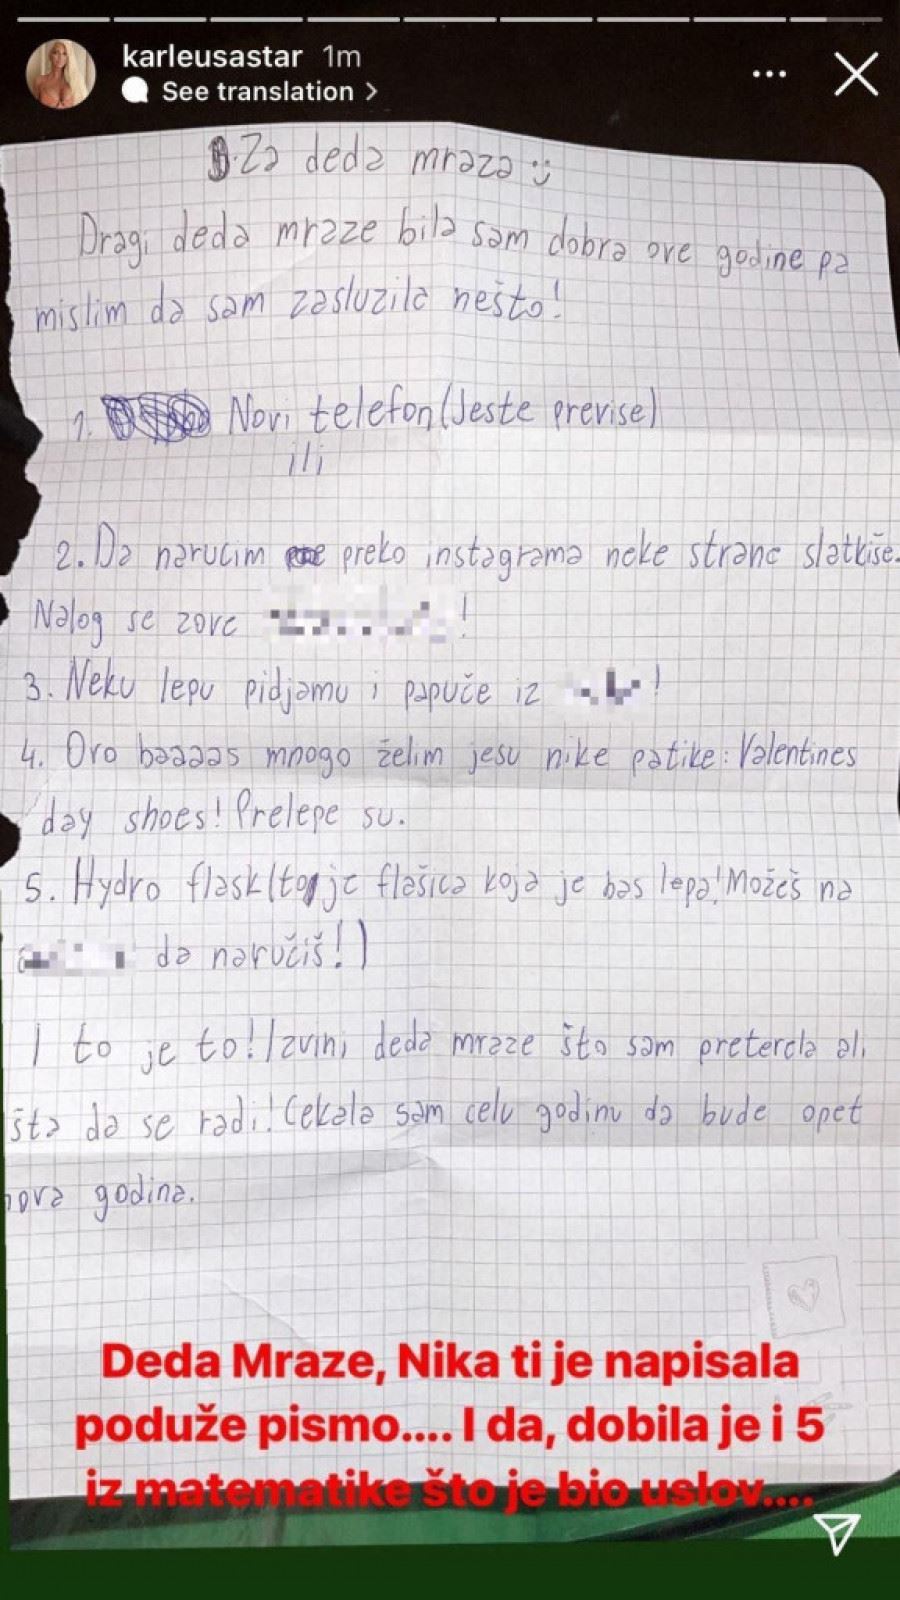 karleusastar 1m
See translation >
Za deda mraza :)
Dragi deda mraze bila sam dobra ove godine pa
mislim da sam zasluzila nešto!
1. Novi telefon (Jeste previse)
ili
2. Da narucim preko instagrama neke strane slatkiše.
Nalog se zove !
3. Neku lepu pidjamu i papuče iz !
4. Ovo baaaas mnogo želim jesu nike patike: Valentines
day shoes! Prelepe su.
5. Hydro flask (to je flašica koja je bas lepa! Možeš na
da naručiš!)
I to je to! Izvini deda mraze što sam preterela ali
šta da se radi! Cekala sam celu godinu da bude opet
nova godina.
Deda Mraze, Nika ti je napisala
poduže pismo.... I da, dobila je i 5
iz matematike što je bio uslov....